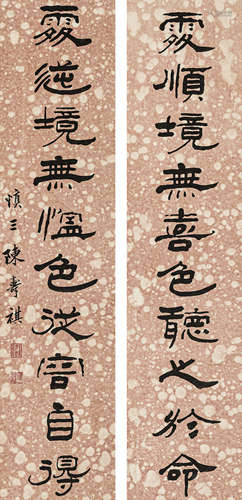 處順境無喜色聽之於命
處逆境無慍色從容自得
慎三陳壽祺